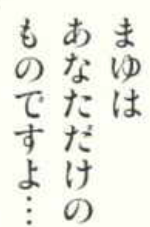 まゆは
あなただけの
ものですよ…